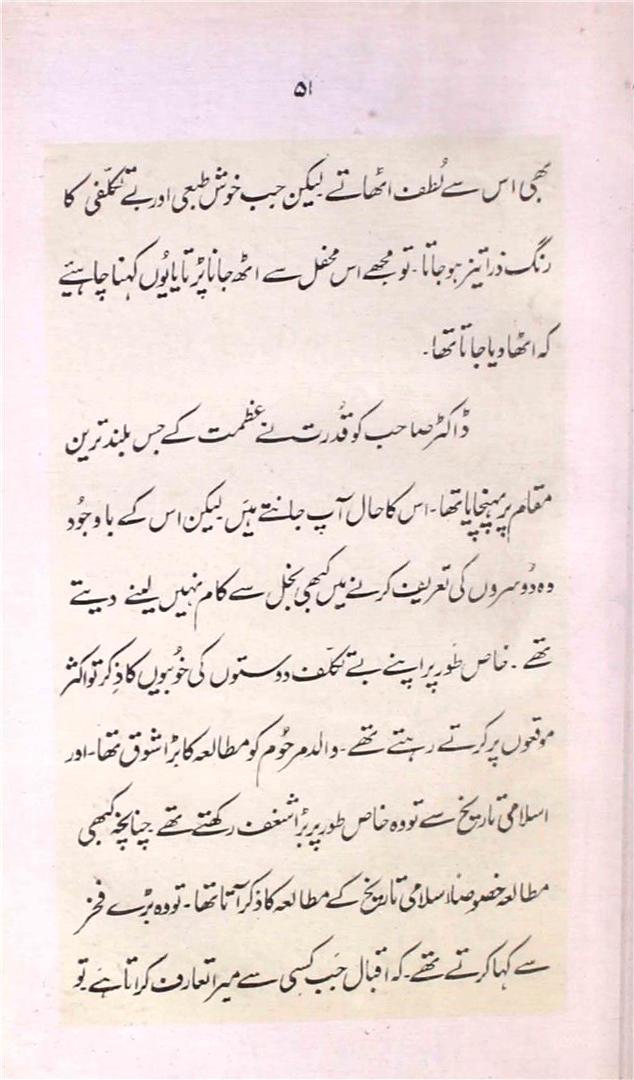 ۵۱
بھی اس سے لُطف اٹھاتے لیکن جب خوش طبعی اور بے تکلّفی کا
رنگ ذرا تیز ہو جاتا۔ تو مجھے اس محفل سے اٹھ جانا پڑتا یا یُوں کہنا چاہئیے
کہ اٹھا دیا جاتا تھا۔
ڈاکٹر صاحب کو قُدرت نے عظمت کے جس بلند ترین
مقام پر پہنچایا تھا۔ اس کا حال آپ جانتے ہیں لیکن اس کے باوجُود
وہ دُوسروں کی تعریف کرنے میں کبھی بخل سے کام نہیں لینے دیتے
تھے۔ خاص طَور پر اپنے بے تکلّف دوستوں کی خُوبیوں کا ذِکر تو اکثر
موقعوں پر کرتے رہتے تھے۔ والد مرحُوم کو مطالعہ کا بڑا شوق تھا۔ اور
اسلامی تاریخ سے تو وہ خاص طور پر بڑا شغف رکھتے تھے چنانچہ کبھی
مطالعہ خصوصاً اسلامی تاریخ کے مطالعہ کا ذکر آتا تھا۔ تو وہ بڑے فخر
سے کہا کرتے تھے۔ کہ اقبال جَب کسی سے میرا تعارف کراتا ہے۔ تو